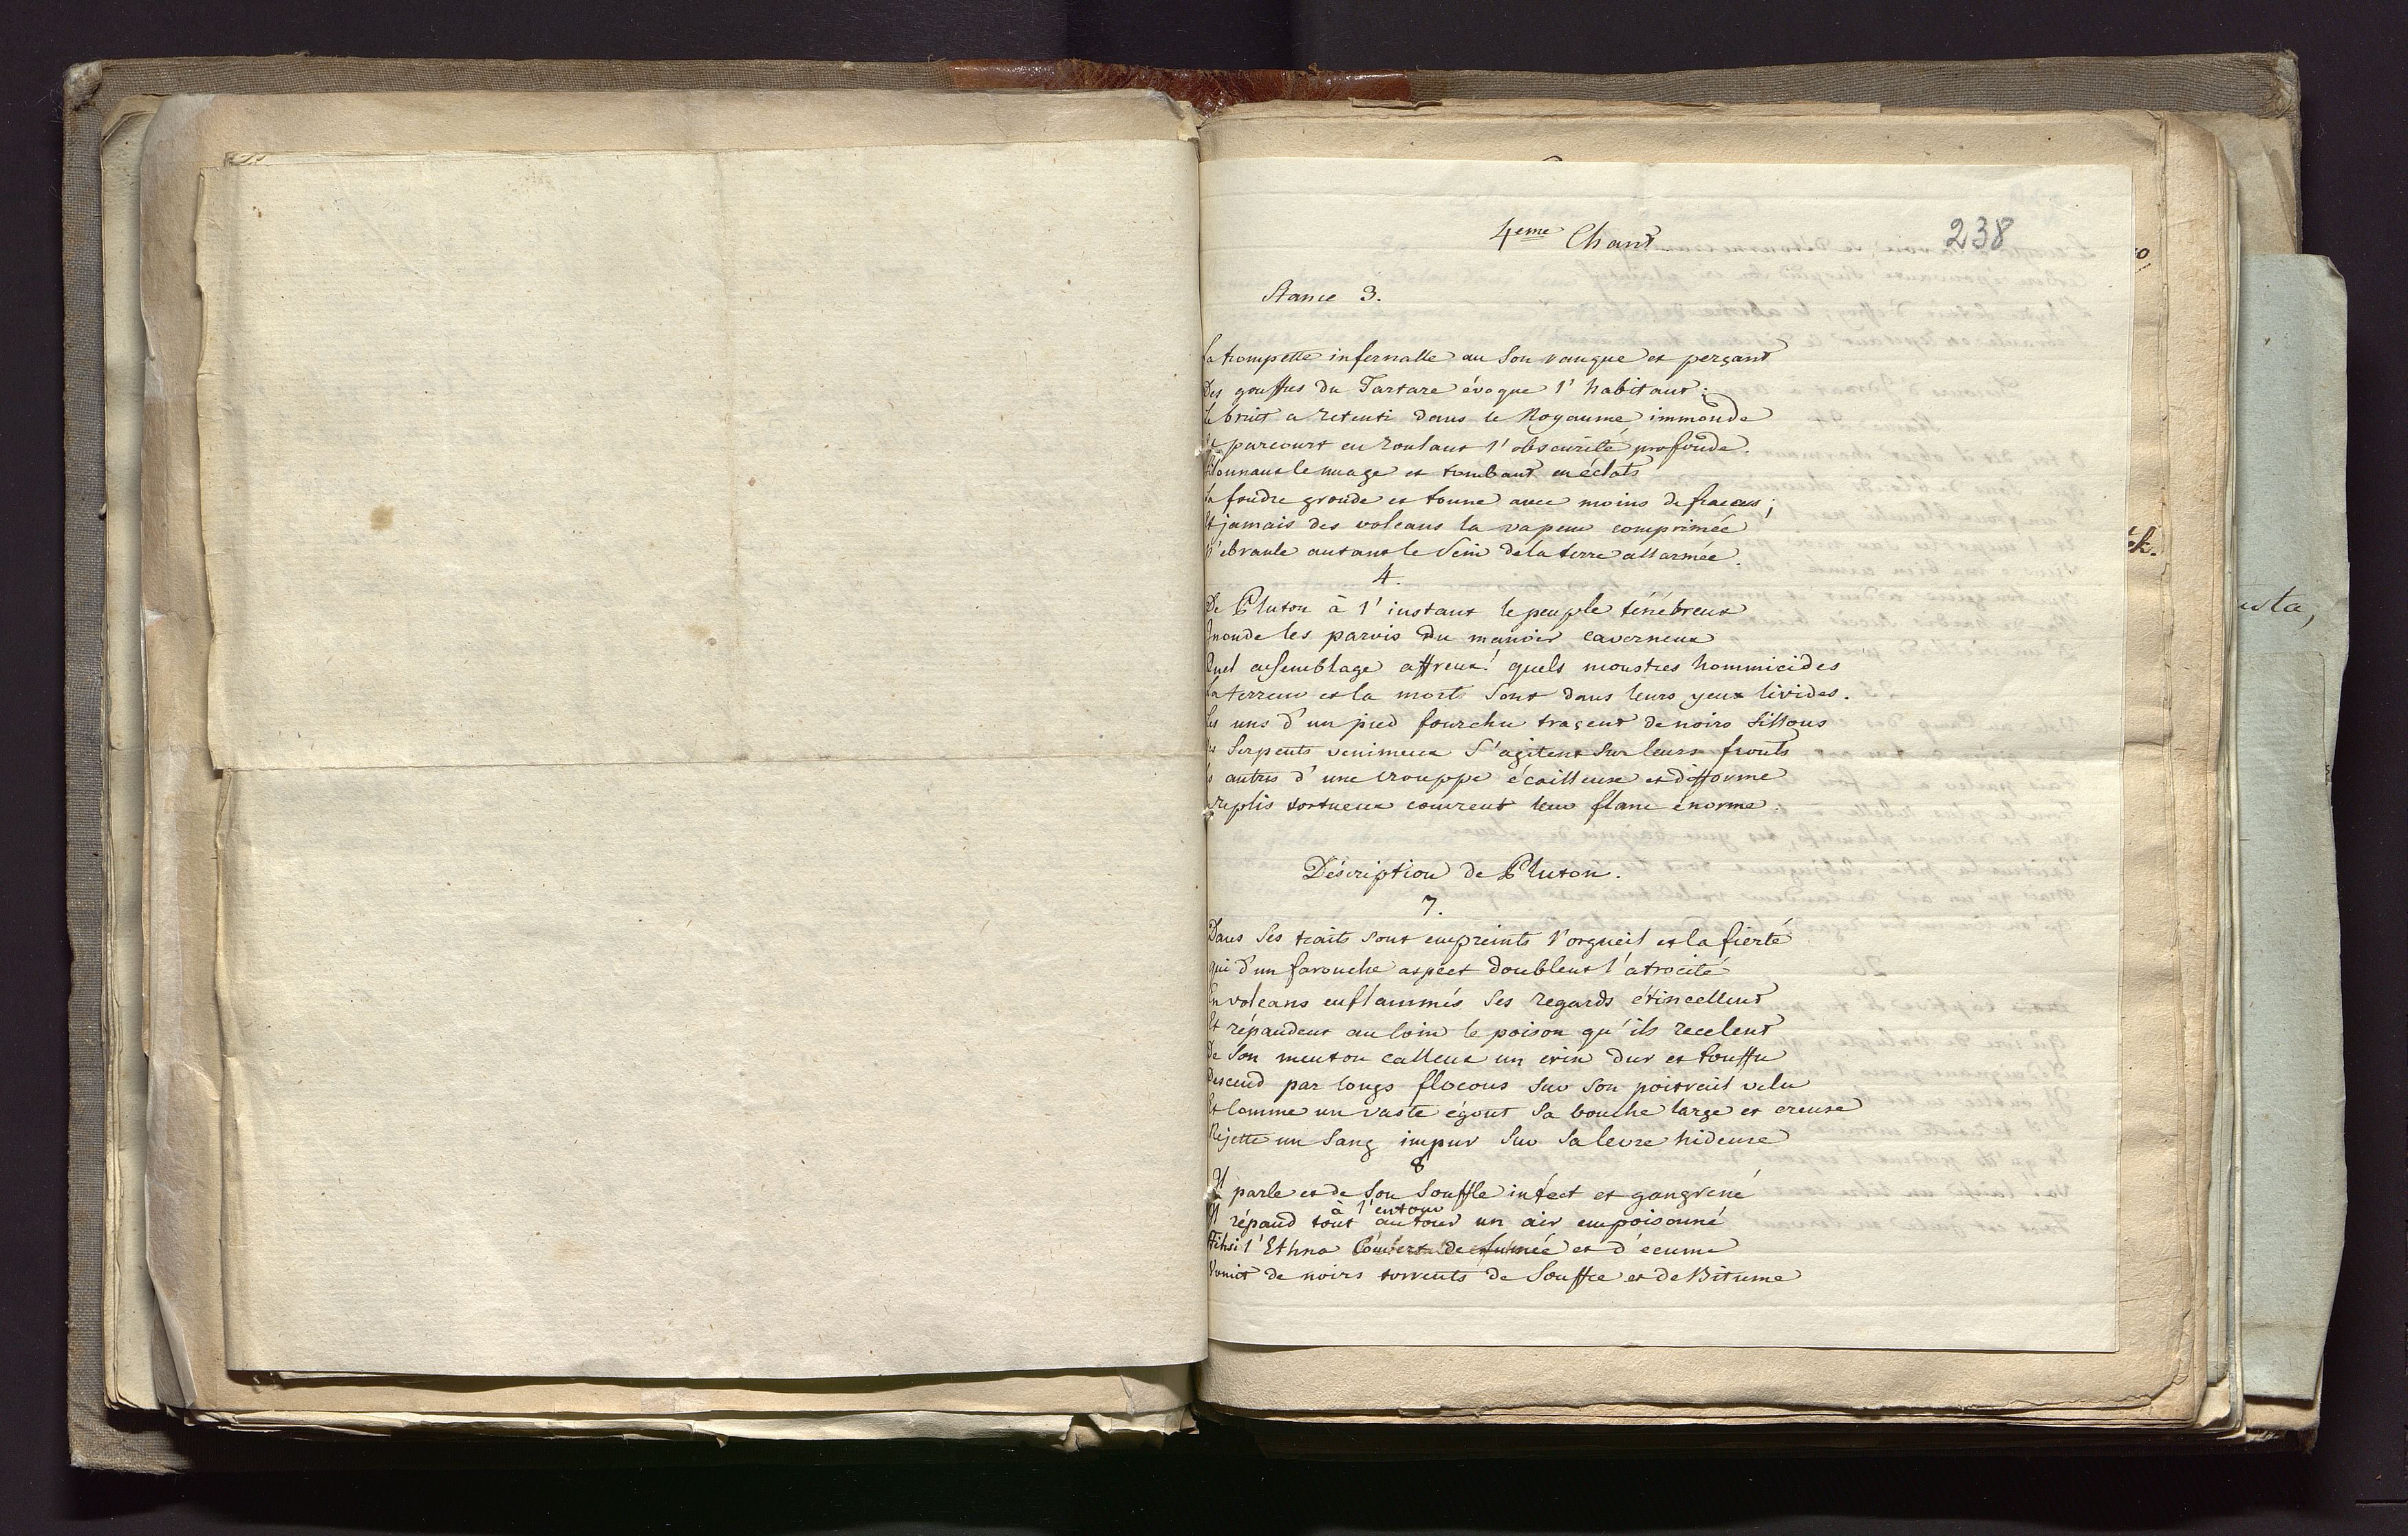 4eme Chant.
238
Stance 3.
La trompette infernalle au Son rauque et perçant
Des gouffres du Tartare évoque l'habitant:
Le bruit a retenti dans le Royaume immonde
Et parcourt en roulant l'obscurité profonde.
Sillonnant le nuage et tombant en éclats
La foudre gronde et tonne avec moins de fracas;
Et jamais des volcans la vapeur comprimée
N'ebranle autant le Sein de la terre allarmée.
4.
De Pluton à l'instant le peuple ténébreux
Inonde les parvis du manoir caverneux
Quel assemblage affreux! quels monstres hommicides
La terreur et la mort Sont dans leurs yeux livides.
Les uns d'un pied fourchu traçent de noirs Sillons
Des Serpents venimeux S'agitent Sur leurs fronts
Les autres d'une crouppe écailleuse et difforme
replis tortueux couvrent leur flanc énorme.
Déscription de Pluton.
7.
Dans Ses traits sont empreints l'orgueil et la fierté
qui d'un farouche aspect doublent l'atrocité
En volcans enflammés Ses regards étincellent
Et répandent au loin le poison qu'ils recelent
De Son menton calleux un crin dur et touffu
Descend par longs flocons Sur Son poitrail velu
Et Comme un vaste égout Sa bouche large et creuse
Rejette un Sang impur Sur Sa levre hideuse
8
Il parle et de Son Souffle infect et gangrené
à l'entour
Il répand tout autour un air empoisonné
Ainsi l'Ethna Couvert de fumée et d'écume
Vomit de noirs torrents de Souffre et de Bitume
usta,